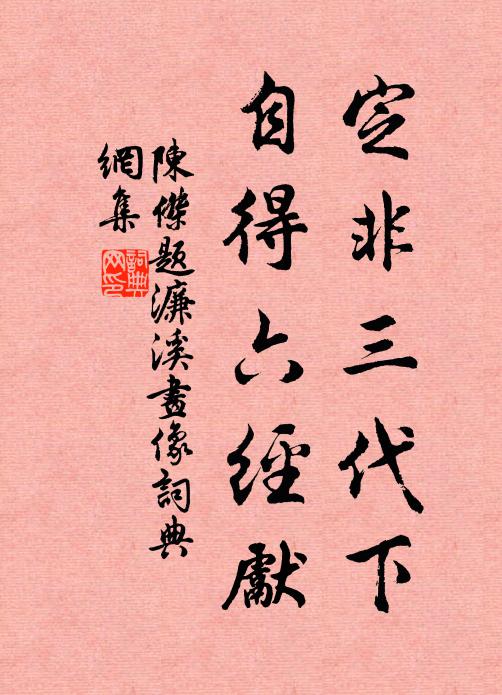 定非三代下
自得六經獻
陳傑題濂溪畫像詞典
網集
詞典
网印